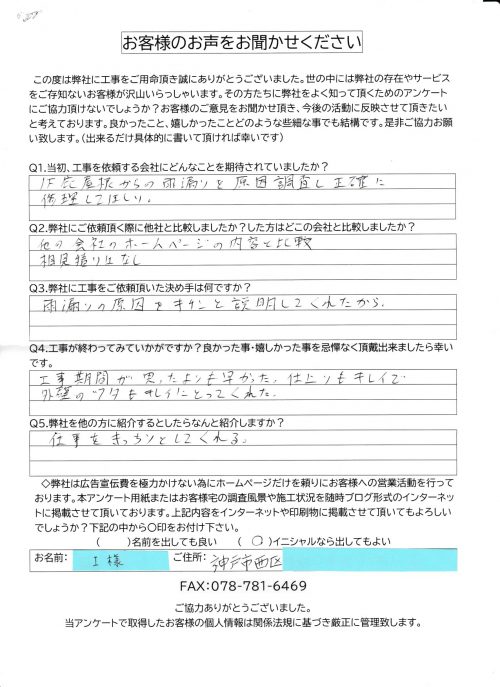 お客様のお声をお聞かせください
この度は弊社に工事をご用命頂き誠にありがとうございました。世の中には弊社の存在やサービス
をご存知ないお客様が沢山いらっしゃいます。その方たちに弊社をよく知って頂くためのアンケート
にご協力頂けないでしょうか?お客様のご意見をお聞かせ頂き、今後の活動に反映させて頂きたい
と考えております。良かったこと、嬉しかったことどのような些細な事でも結構です。是非ご協力お願
い致します。(出来るだけ具体的に書いて頂ければ幸いです)
Q1.当初、工事を依頼する会社にどんなことを期待されていましたか?
1F 屋根からの雨漏りを原因調査し正確に
修理してほしい。
Q2.弊社にご依頼頂く際に他社と比較しましたか?した方はどこの会社と比較しましたか?
他の会社のホームページの内容と比較
相見積りはなし
Q3.弊社に工事をご依頼頂いた決め手は何ですか?
雨漏りの原因をキチンと説明してくれたから。
Q4.工事が終わってみていかがですか?良かった事・嬉しかった事を忌憚なく頂戴出来ましたら幸い
です。
工事期間が思ったよりも早かった。仕上りもキレイで
外壁のツタもキレイにとってくれた。
Q5.弊社を他の方に紹介するとしたらなんと紹介しますか?
仕事をきっちりとしてくれる。
◇弊社は広告宣伝費を極力かけない為にホームページだけを頼りにお客様への営業活動を行って
おります。本アンケート用紙またはお客様宅の調査風景や施工状況を随時ブログ形式のインターネッ
トに掲載させて頂いております。上記内容をインターネットや印刷物に掲載させて頂いてもよろしい
でしょうか?下記の中から〇印をお付け下さい。
( )名前を出しても良い (○)イニシャルなら出してもよい
お名前: I様 ご住所: 神戸市西区
FAX:078-781-6469
ご協力ありがとうございました。
当アンケートで取得したお客様の個人情報は関係法規に基づき厳正に管理致します。